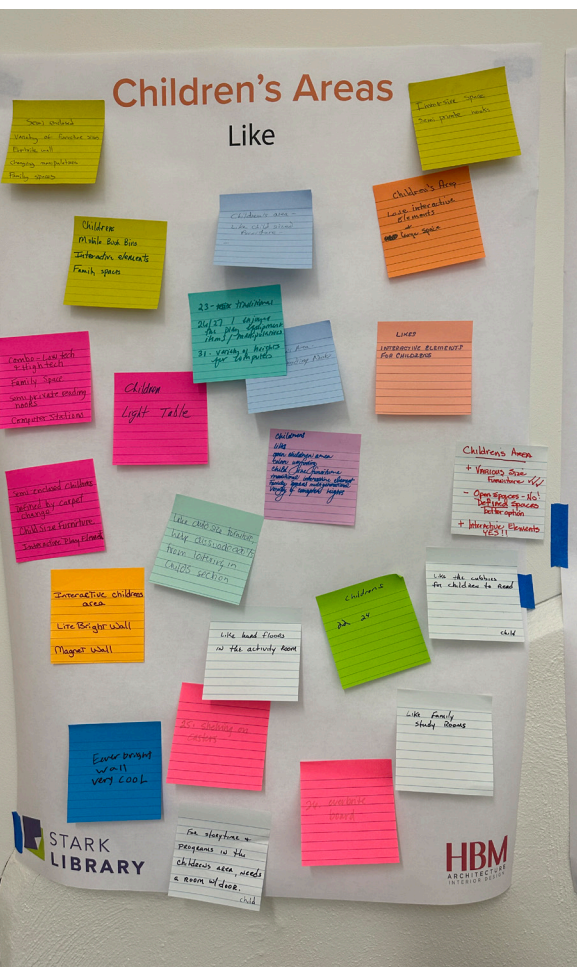 Children's Areas
Like
Semi enclosed
Variety of Furniture sizes
Portable wall
Changing manipulatives
Family spaces
semi private nooks
Children's Area -
Like child sized
Furniture
Children's Area
Love interactive
elements
+
large space
Children
Mobile Book Bins
Interactive elements
Family spaces
23 - traditional
26/27 / enjoyed
the play equipment
items/manipulatives
31. variety of heights
for computers
Area
LIKES
INTERACTIVE ELEMENTS
FOR CHILDRENS
Combo - Low tech
+ High tech
Family Space
Semi private reading
nooks
Computer Stations
Children
Light Table
Childrens
Likes
open children area
child size furniture
interactive element
family spaces
variety of heights
Childrens Area
+ Various Size
Furniture
- Open Spaces - No!
Defined spaces
better option
+ Interactive Elements
YES!!
Semi enclosed childrens
defined by carpet
change
Child Size Furniture
Interactive Play Elements
Like child size furniture,
help discourage adults
from loitering in
child's section
Like the cubbies
for children to read
child
Interactive childrens
area
Lite Bright Wall
Magnet Wall
Children's
22 24
Like hard floors
in the activity room
25.
Like Family
Study Rooms
Everbright
wall
very cool
board
For storytime +
programs in the
childrens area, needs
a room w/door.
child
STARK
LIBRARY
HBM
ARCHITECTURE
INTERIOR DESIGN